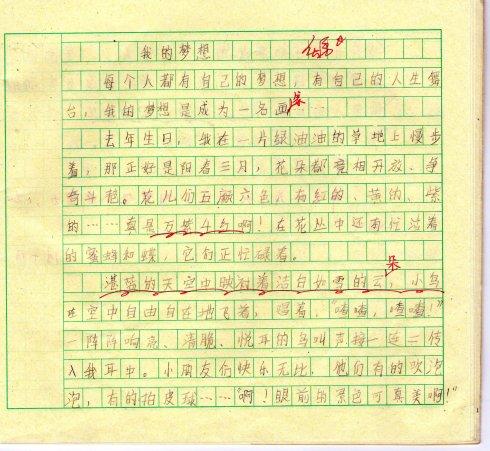 我的梦想
每个人都有自己的梦想，有自己的人生舞
台，我的梦想是成为一名画家……
去年生日，我在一片绿油油的草地上慢步
着，那正好是阳春三月，花朵都竞相开放、争
奇斗艳。花儿们五颜六色，有红的、黄的、紫
的……真是万紫千红啊！在花丛中还有忙活着
的蜜蜂和蝶，它们正忙碌着。
湛蓝的天空中映衬着洁白如雪的云朵，小鸟
在空中自由自在地飞着，唱着，“喳喳，喳喳！”
一阵阵响亮、清脆、悦耳的鸟叫声接一连二传
入我耳中。小朋友们快乐无比，他们有的吹泡
泡，有的拍皮球……“啊！眼前的景色可真美啊！”